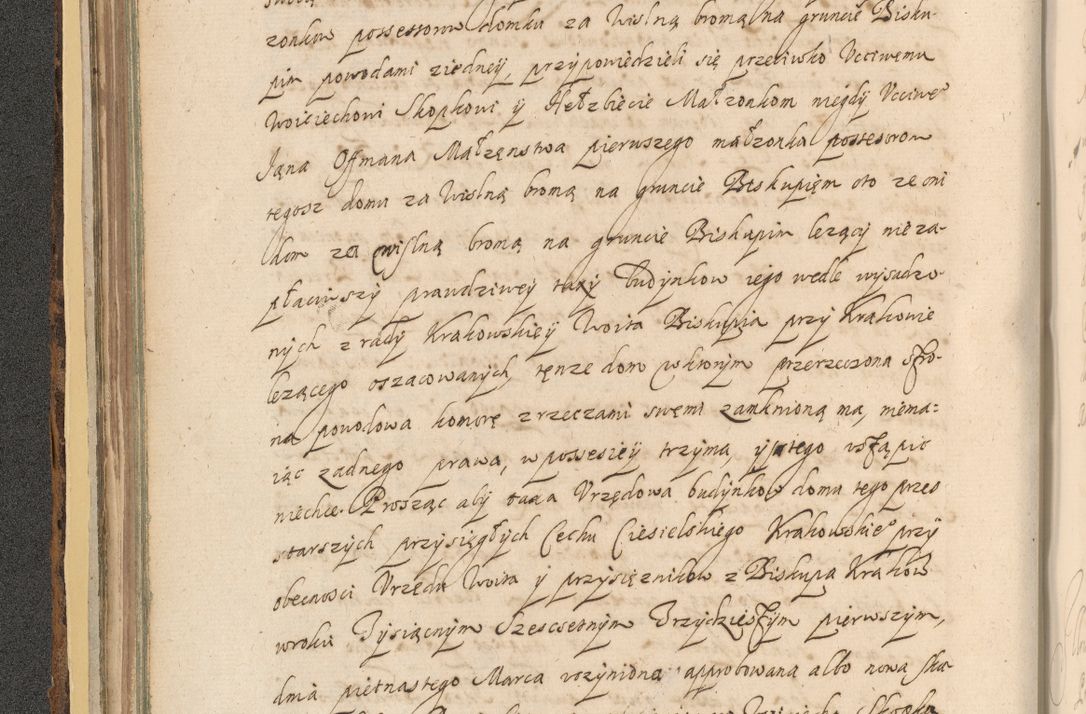 zonkow possessorow domku za Wislną bromą na gruncie Bisku-
pim powodami ziedneÿ, przÿpowiedzieli się przeciwko Vcciwemu
Woiciechowi Skopkowi ÿ Helzbiecie Małzonkom niegdÿ Vcciwe°
Jana Offmana Małzenstwa pierwszego małzonka possesorom
tegosz domu za Wislną bromą na gruncie Biskupięm oto ze oni
dom za wislną bromą na gruncie Biskupim lezącÿ nieza-
płaciwszÿ prawdziweÿ taxÿ Budÿnkow iego wedle wysadzo-
nÿch z radÿ Krakowskieÿ Woita Biskupia przÿ Krakowie
lezącego oszacowanÿch, tęnze dom wktorÿm przerzeczona stro-
na powodowa komorę z rzeczami swęmi zamknioną ma, niema-
iąc zadnego prawa, w possesieÿ trzÿma, ÿ stego vstąpic
niechce. Prosząc abÿ taxa Vrzędowa budÿnkow domu tego przes
starszÿch przÿsięgłÿch Cechu Ciesielskiego Krakowskie° przÿ
obecnosci Vrzędu Woita ÿ przÿsięznikow z Biskupia Krakow
wroku Tÿsiącnÿm Szescsetnÿm Trzÿdziestÿm pierwszÿm,
dnia piętnastego Marca vczÿniona approbowana albo nowa ska